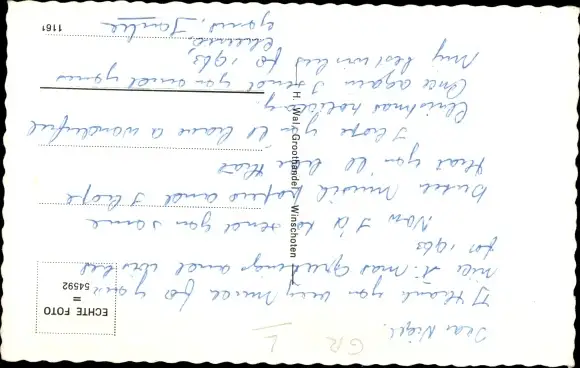 Dear Nigel.
I thank you very much for your
nice X-mas greetings and wishes
for 1963
Now I'd to send you some
Dutch musik papers and I hope
that you'll like that
I hope you'll have a wonderful
Christmas holiday.
Once again I send you and yours
My best wishes for 1963
yours,
ECHTE FOTO
=
54592
H. v. Wal, Groothandel, Winschoten
1161
GR
L